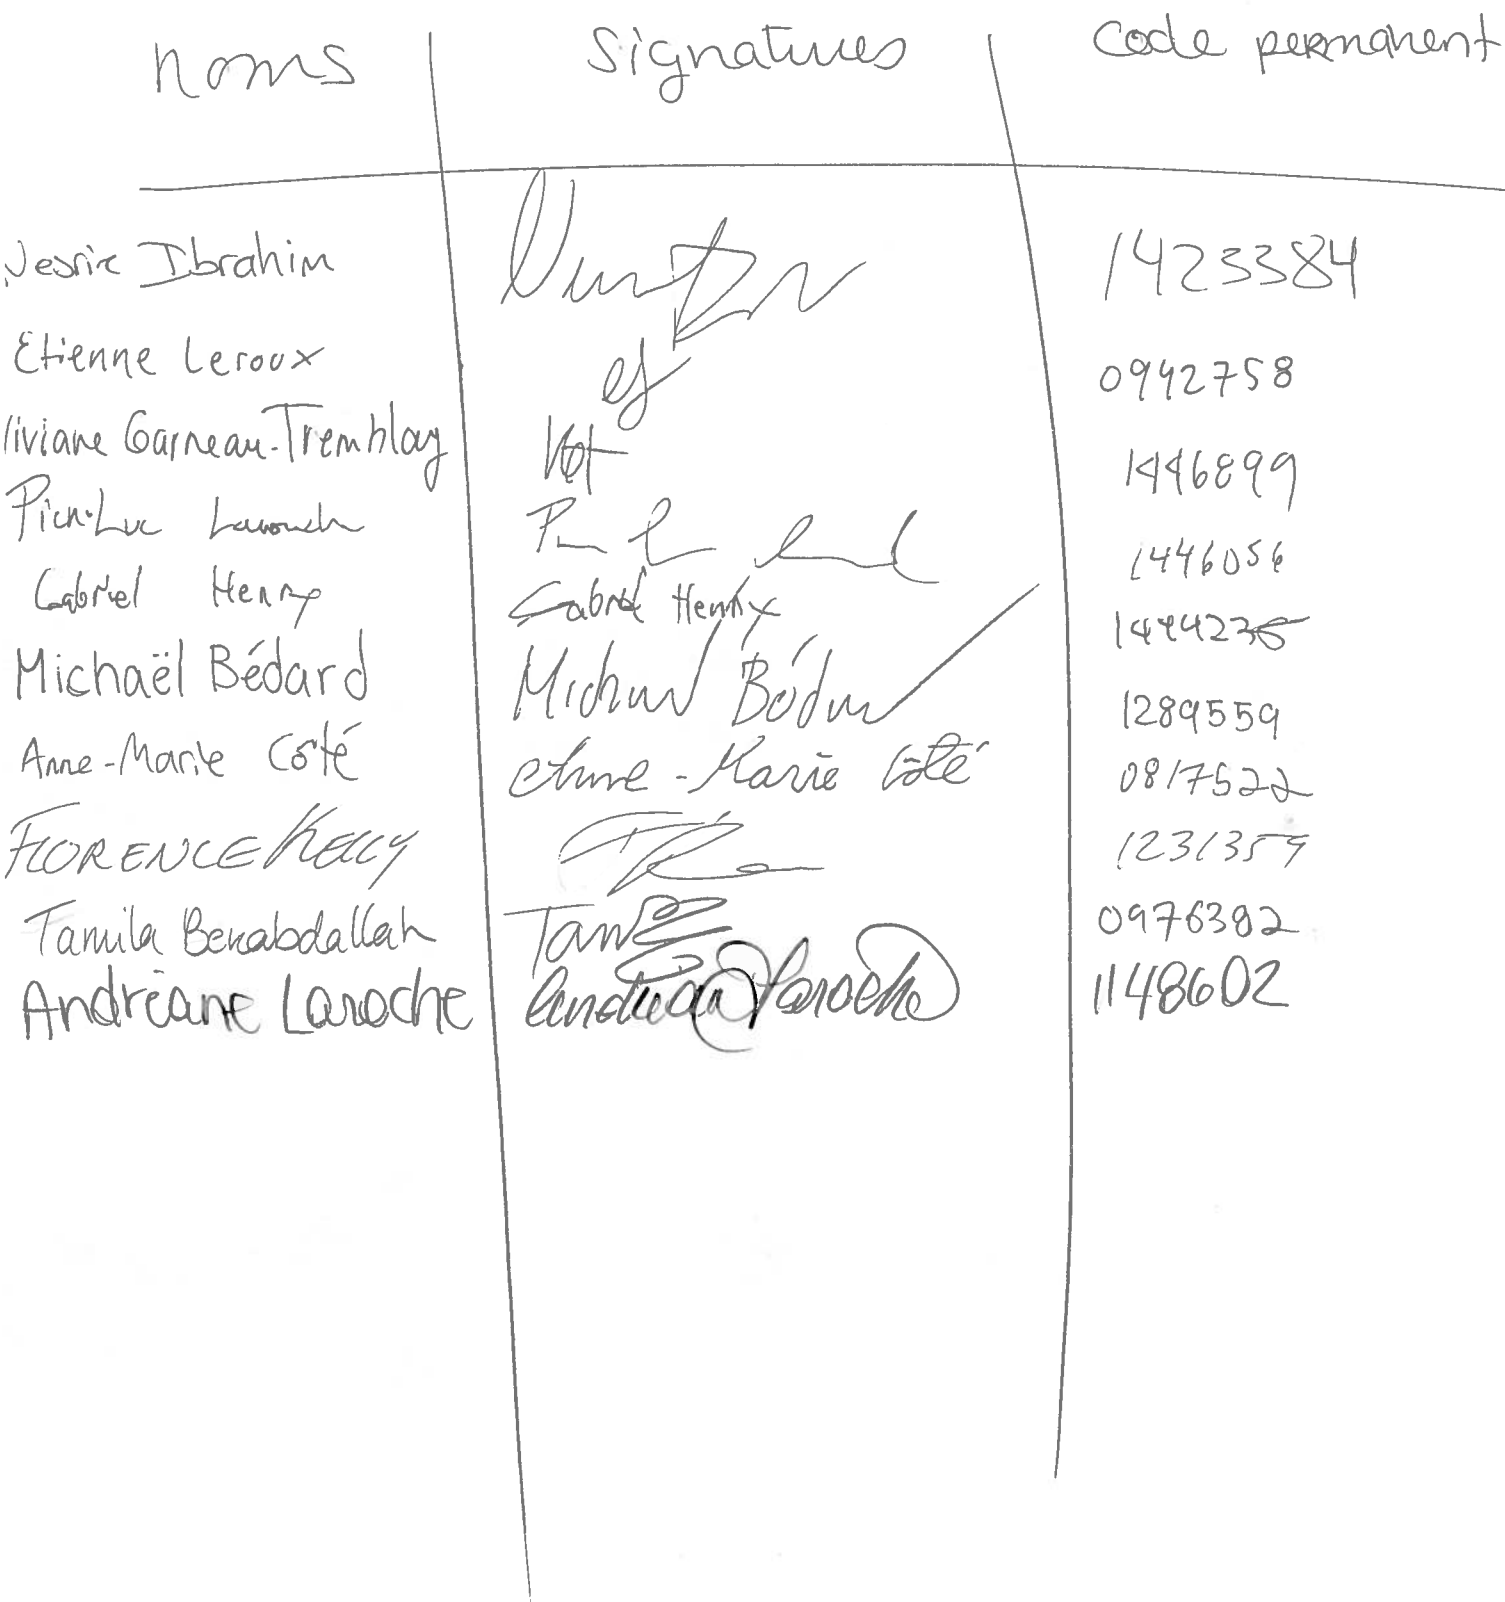 noms Signatures Code permanent
Ibrahim 1423384
Etienne Leroux el 0942758
Viviane Garneau-Tremblay VGT 1446899
Pier-Luc 1446056
Gabriel Henry Gabriel Henry
Michaël Bédard Michael Bédard 1289559
Anne-Marie Côté Anne-Marie Côté 0817522
FLORENCE KELLY 1231359
Tamila Benabdallah Tam 0976382
Andréane Laroche Andréane Laroche 1148602